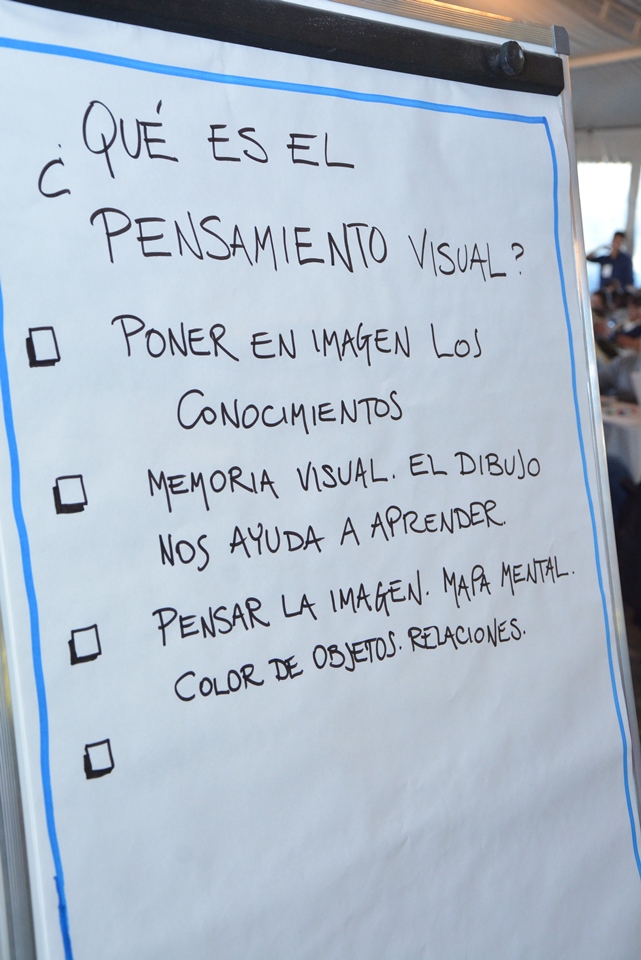 ¿QUÉ ES EL
PENSAMIENTO VISUAL?
PONER EN IMAGEN LOS
CONOCIMIENTOS
MEMORIA VISUAL. EL DIBUJO
NOS AYUDA A APRENDER.
PENSAR LA IMAGEN. MAPA MENTAL.
COLOR DE OBJETOS. RELACIONES.